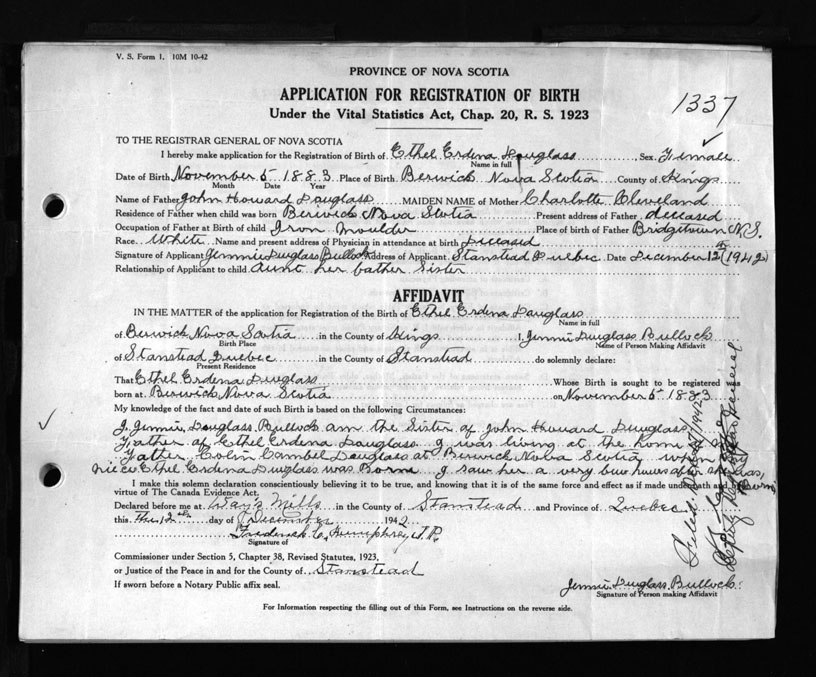 V. S. Form 1. 10M 10-42
PROVINCE OF NOVA SCOTIA
APPLICATION FOR REGISTRATION OF BIRTH
Under the Vital Statistics Act, Chap. 20, R. S. 1923
1337
TO THE REGISTRAR GENERAL OF NOVA SCOTIA
I hereby make application for the Registration of Birth of Ethel Erdena Douglass, Sex, Female
Name in full
Date of Birth November 5 1883 Place of Birth Berwick Nova Scotia County of Kings
Month Date Year
Name of Father John Howard Douglass MAIDEN NAME of Mother Charlotte Cleveland
Residence of Father when child was born Berwick Nova Scotia Present address of Father deceased
Occupation of Father at Birth of child Iron Moulder Place of birth of Father Bridgetown N.S.
Race White Name and present address of Physician in attendance at birth Deceased
Signature of Applicant Jennie Douglass Bullock Address of Applicant Stanstead Quebec Date December 12th (1942)
Relationship of Applicant to child Aunt her father Sister
AFFIDAVIT
IN THE MATTER of the application for Registration of the Birth of Ethel Erdena Douglass
Name in full
of Berwick Nova Scotia in the County of Kings I, Jennie Douglass Bullock
Birth Place Name of Person Making Affidavit
of Stanstead Quebec in the County of Stanstead do solemnly declare:
Present Residence
That Ethel Erdena Douglass Whose Birth is sought to be registered was
born at Berwick Nova Scotia on November 5 1883
My knowledge of the fact and date of such Birth is based on the following Circumstances:
I Jennie Douglass Bullock am the Sister of John Howard Douglass
Father of Ethel Erdena Douglass I was living at the home of my
Father Colin Cambel Douglass at Berwick Nova Scotia when my
niece Ethel Erdena Douglass was Born I saw her a very few hours after she was
Born
I make this solemn declaration conscientiously believing it to be true, and knowing that it is of the same force and effect as if made under oath and by
virtue of The Canada Evidence Act.
Declared before me at Way's Mills in the County of Stanstead and Province of Quebec
this The 12th day of December 1942
Frederick C. Humphrey J.P.
Signature of
Commissioner under Section 5, Chapter 38, Revised Statutes, 1923,
or Justice of the Peace in and for the County of Stanstead
If sworn before a Notary Public affix seal.
Jennie Douglass Bullock
Signature of Person making Affidavit
For Information respecting the filling out of this Form, see Instructions on the reverse side.
Filed 1942
Deputy Registrar General